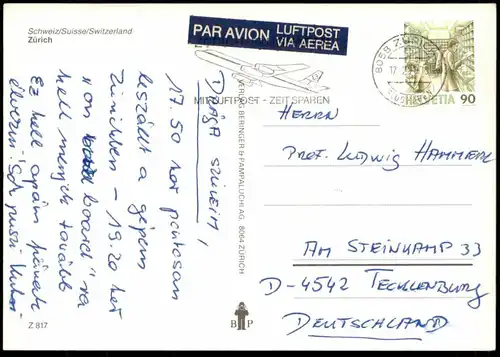 Schweiz/Suisse/Switzerland
Zürich
PAR AVION
LUFTPOST
VIA AEREA
MIT LUFTPOST - ZEIT SPAREN
8058 ZÜRICH
HELVETIA 90
DRÁGA SZÜLEIM!
17.50 kor pontosan
leszállt a gépem
Zürichben - 19.20 kor
"on board" kell mennjek tovább
Ez
Sok puszi
VERLAG BERINGER & PAMPALUCHI AG, 8064 ZÜRICH
HERRN
PROF. LUDWIG HAMMERL
AM STEINKAMP 33
D-4542 TECKLENBURG
DEUTSCHLAND
Z 817
B P